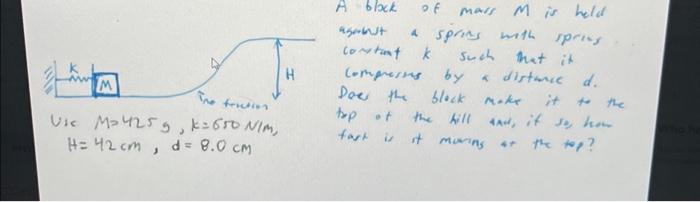 A block of mass M is held
against a spring with spring
constant k such that it
compresses by a distance d.
Does the block make it to the
top of the hill and, if so, how
fast is it moving at the top?
K
M
H
no friction
Use M=425 g, k=650 N/m,
H=42 cm, d=8.0 cm